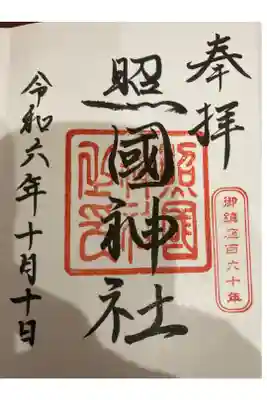 奉拝
照國神社
令和六年十月十日
御鎮座百六十年